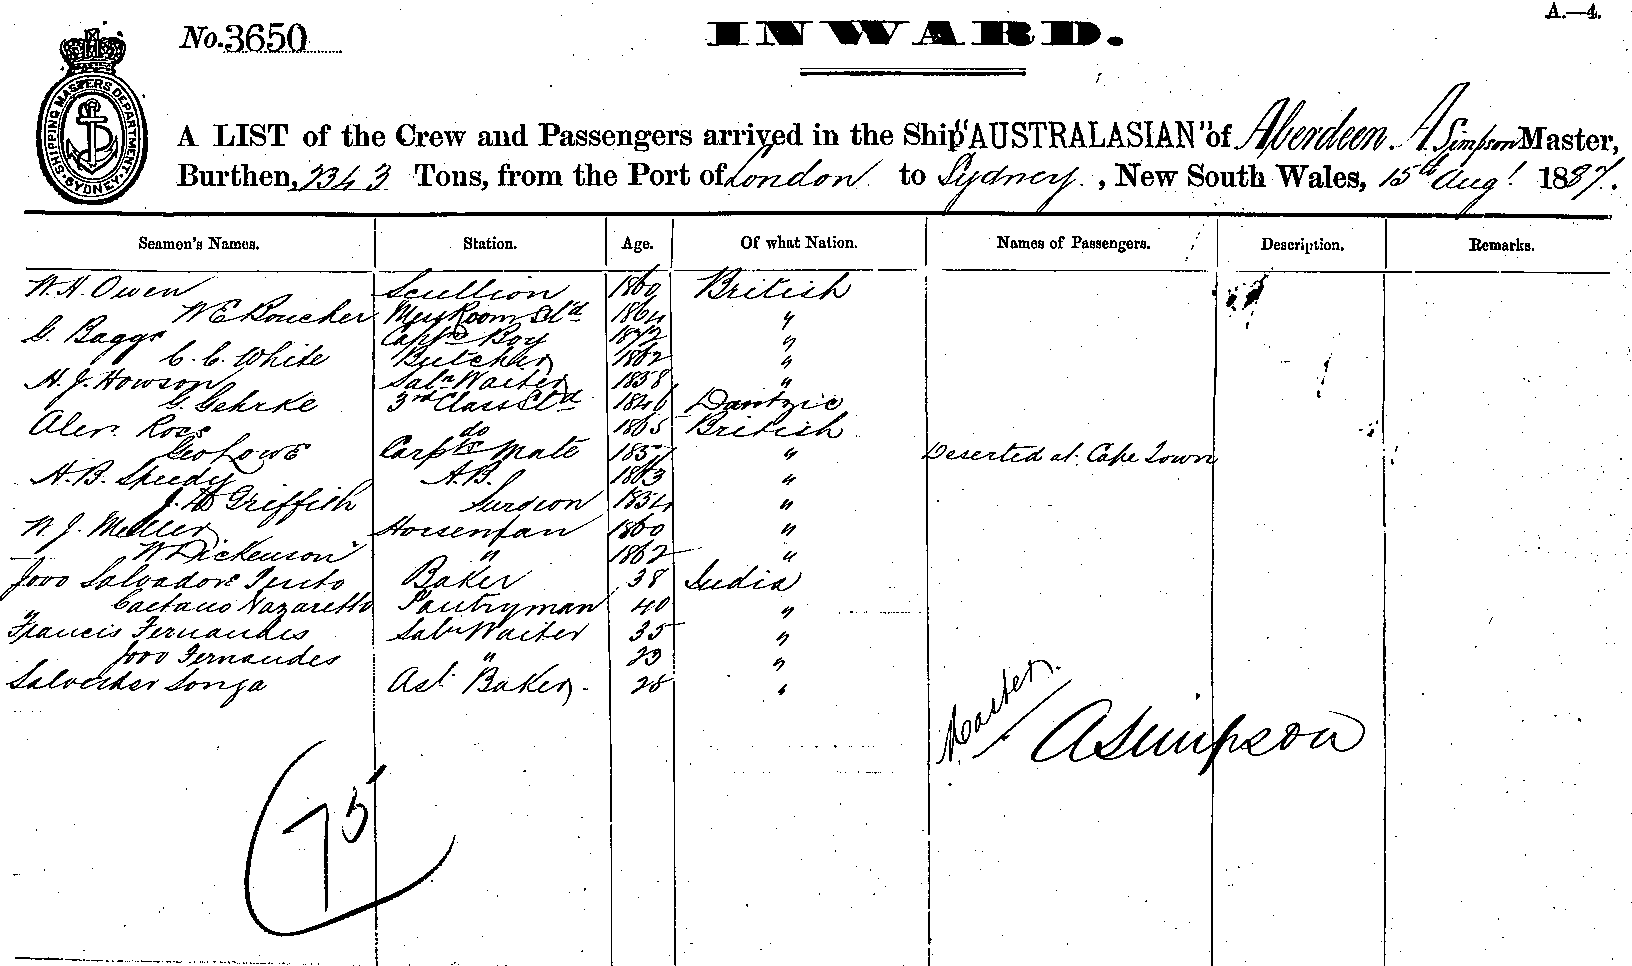 A.—4.
No. 3650
INWARD.
SHIPPING MASTERS DEPARTMENT. SYDNEY
A LIST of the Crew and Passengers arrived in the Ship "AUSTRALASIAN" of Aberdeen. A Simpson Master,
Burthen, 2343 Tons, from the Port of London to Sydney, New South Wales, 15th Augt. 1887.
Seamen's Names. Station. Age. Of what Nation. Names of Passengers. Description. Remarks.
W. H. Owen Scullion 1860 British
W E Boucher Mess Room Std 1864 "
G. Baggs Captns Boy 1872 "
C. C. White Butcher 1862 "
H. J. Howson Saln Waiter 1858 "
G. Gehrke 3rd Class Std 1840 Dantzic
Alexr. Ross do 1865 British
Geo Lowe Carptrs Mate 1857 " Deserted at Cape Town
H. B. Speedy A.B. 1863 "
J. H. Griffith Surgeon 1854 "
W. J. Meller 1860 "
W Dickenson " 1862 "
Joao Salvadore Pinto Baker 38 India
Caetano Nazaretto Pantryman 40 "
Francis Fernandes Saln Waiter 35 "
Joao Fernandes " 23 "
Salvester Songa Ast. Baker. 28 "
Master. A Simpson
75